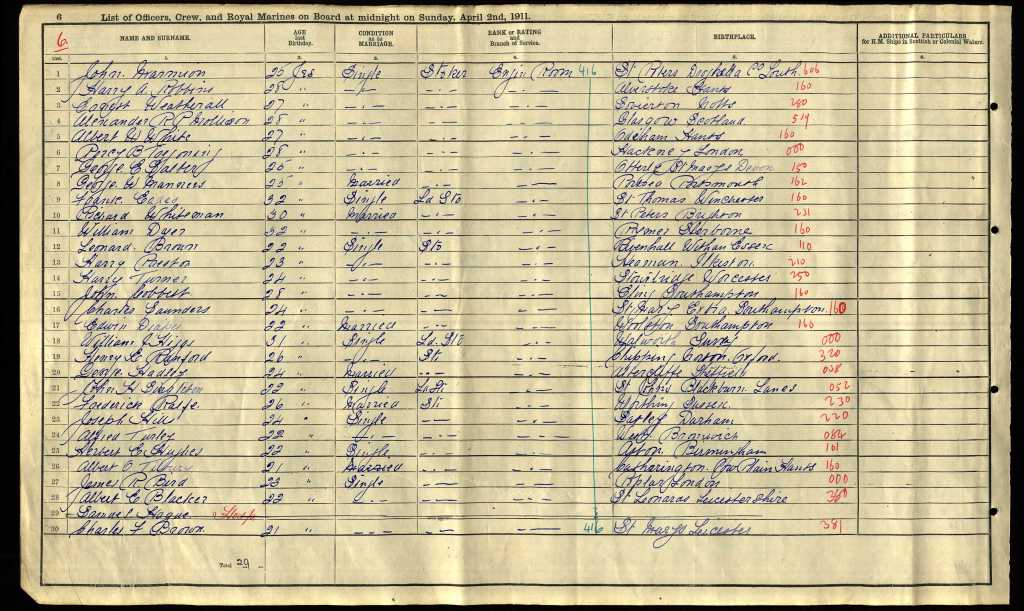 6 List of Officers, Crew, and Royal Marines on Board at midnight on Sunday, April 2nd, 1911.
6a NAME AND SURNAME. AGE last Birthday. CONDITION as to MARRIAGE. RANK or RATING and Branch of Service. BIRTHPLACE. ADDITIONAL PARTICULARS for H.M. Ships in Scottish or Colonial Waters.
1 John 25 Yrs Single Stoker Engine Room 416 St Peters Drogheda Co Louth 606
2 Harry A Robbins 28 " Alverstoke Hants 160
3 Ernest Weatherall 27 " Everton Notts
4 Alexander R P 28 " Glasgow Scotland 519
5 Albert W White 27 " Odiham Hants 160
6 Percy B 28 " Hackney London 000
7 George E 25 " St Marys Devon 150
8 George W Manners 25 " Married Portsea Portsmouth 162
9 Frank 32 " Single Ld Sto St Thomas Winchester 160
10 Richard Whiteman 30 " Married St Peters Brighton 231
11 William Dyer 32 " 160
12 Leonard Brown 22 " Single Sto Rivenhall Witham Essex 110
13 Harry Preston 23 " Ilkeston 210
14 Harry Turner 24 " Stourbridge Worcester 250
15 John 28 " Southampton 160
16 Charles Saunders 24 " St Mary Extra Southampton 160
17 Edwin 22 " Married Woolston Southampton 160
18 William J 31 " Single Ld. Sto Walworth Surrey 000
19 Henry E 26 " Sto Chipping Oxford 320
20 George Hadley 24 " Married Attercliffe Sheffield
21 John H Singleton 22 " Single St Johns Blackburn Lancs 052
22 Frederick 26 " Married Sto Worthing Sussex 230
23 Joseph Hill 24 " Single Durham 220
24 Alfred Turley 22 " West Bromwich
25 Herbert C Hughes 22 " Single Aston Birmingham 101
26 Albert Tilbury 21 " Married Catherington Cow Plain Hants 160
27 James R Bird 23 " Single Poplar London 000
28 Albert E Blacker 22 " St Leonards Leicestershire
29 Samuel Hague
30 Charles F Brown 21 " 416 St Marys Leicester 381
Total 29